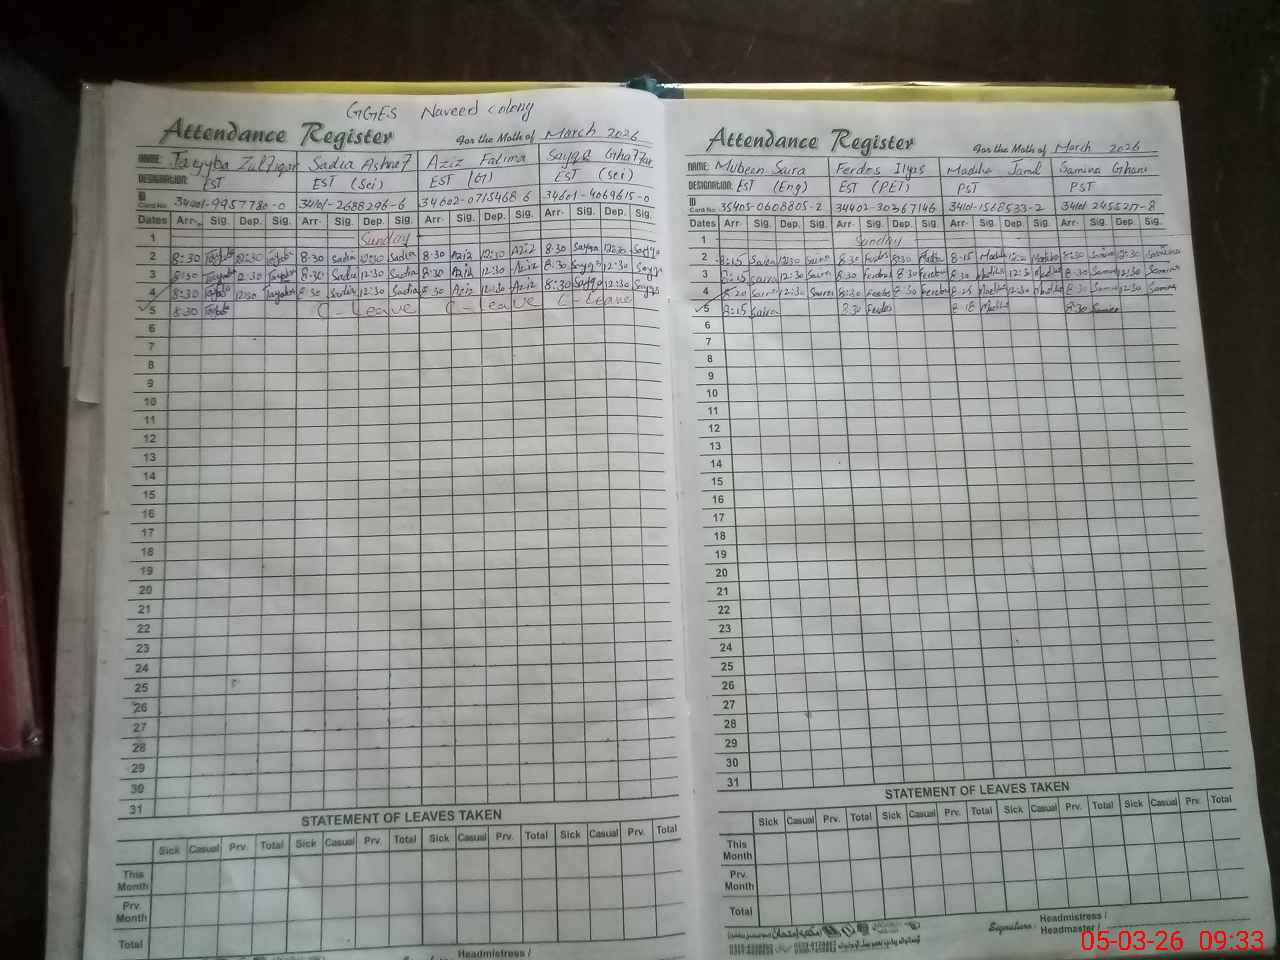 GGES Naveed Colony
Attendance Register
For the Moth of March 2026
NAME: Tayyba Zulfiqar Sadia Ashraf Aziz Fatima Sayqa Ghaffar
DESIGNATION: EST EST (Sci) EST (GI) EST (Sci)
ID Card No. 34601-9957780-0 34101-2688296-6 34602-0715468 6 34601-4069615-0
Dates Arr- Sig. Dep. Sig. Arr- Sig. Dep. Sig. Arr- Sig. Dep. Sig. Arr- Sig. Dep. Sig.
1 Sunday
2 8:30 Tayyba 12:30 Tayyba 8:30 Sadia 12:30 Sadia 8:30 Aziz 12:30 Aziz 8:30 Sayqa 12:30 Sayqa
3 8:30 Tayyba 12:30 Tayyba 8:30 Sadia 12:30 Sadia 8:30 Aziz 12:30 Aziz 8:30 Sayqa 12:30 Sayqa
4 8:30 Tayyba 12:30 Tayyba 8:30 Sadia 12:30 Sadia 8:30 Aziz 12:30 Aziz 8:30 Sayqa 12:30 Sayqa
5 8:30 Tayyba C-Leave C-Leave C-Leave
6
7
8
9
10
11
12
13
14
15
16
17
18
19
20
21
22
23
24
25
26
27
28
29
30
31
STATEMENT OF LEAVES TAKEN
Sick Casual Prv. Total Sick Casual Prv. Total Sick Casual Prv. Total Sick Casual Prv. Total
This Month
Prv. Month
Total
Headmistress /
Attendance Register
For the Moth of March 2026
NAME: Mubeen Saira Ferdos Ilyas Madiha Jamil Samina Ghani
DESIGNATION: EST (Eng) EST (PET) PST PST
ID Card No. 35405-0608805-2 34402-3036714 6 34101-1568533-2 34101 2455217-8
Dates Arr Sig. Dep. Sig. Arr- Sig. Dep. Sig. Arr- Sig. Dep. Sig. Arr- Sig. Dep. Sig.
1 Sunday
2 8:15 Saira 12:30 Saira 8:30 Ferdos 8:15 Madiha 12:30 Madiha 8:30 Samina 12:30 Samina
3 8:15 Saira 12:30 Saira 8:30 Ferdos Ferdos 8:30 Madiha 12:30 Madiha 8:30 Samina 12:30 Samina
4 8:20 Saira 12:30 Saira 8:30 Ferdos Ferdos 8:25 Madiha 12:30 Madiha 8:30 Samina 12:30 Samina
5 8:15 Saira 8:30 Ferdos 8:15 Madiha 8:30 Samina
6
7
8
9
10
11
12
13
14
15
16
17
18
19
20
21
22
23
24
25
26
27
28
29
30
31
STATEMENT OF LEAVES TAKEN
Sick Casual Prv. Total Sick Casual Prv. Total Sick Casual Prv. Total Sick Casual Prv. Total
This Month
Prv. Month
Total
Signature: Headmistress / Headmaster /
05-03-26 09:33